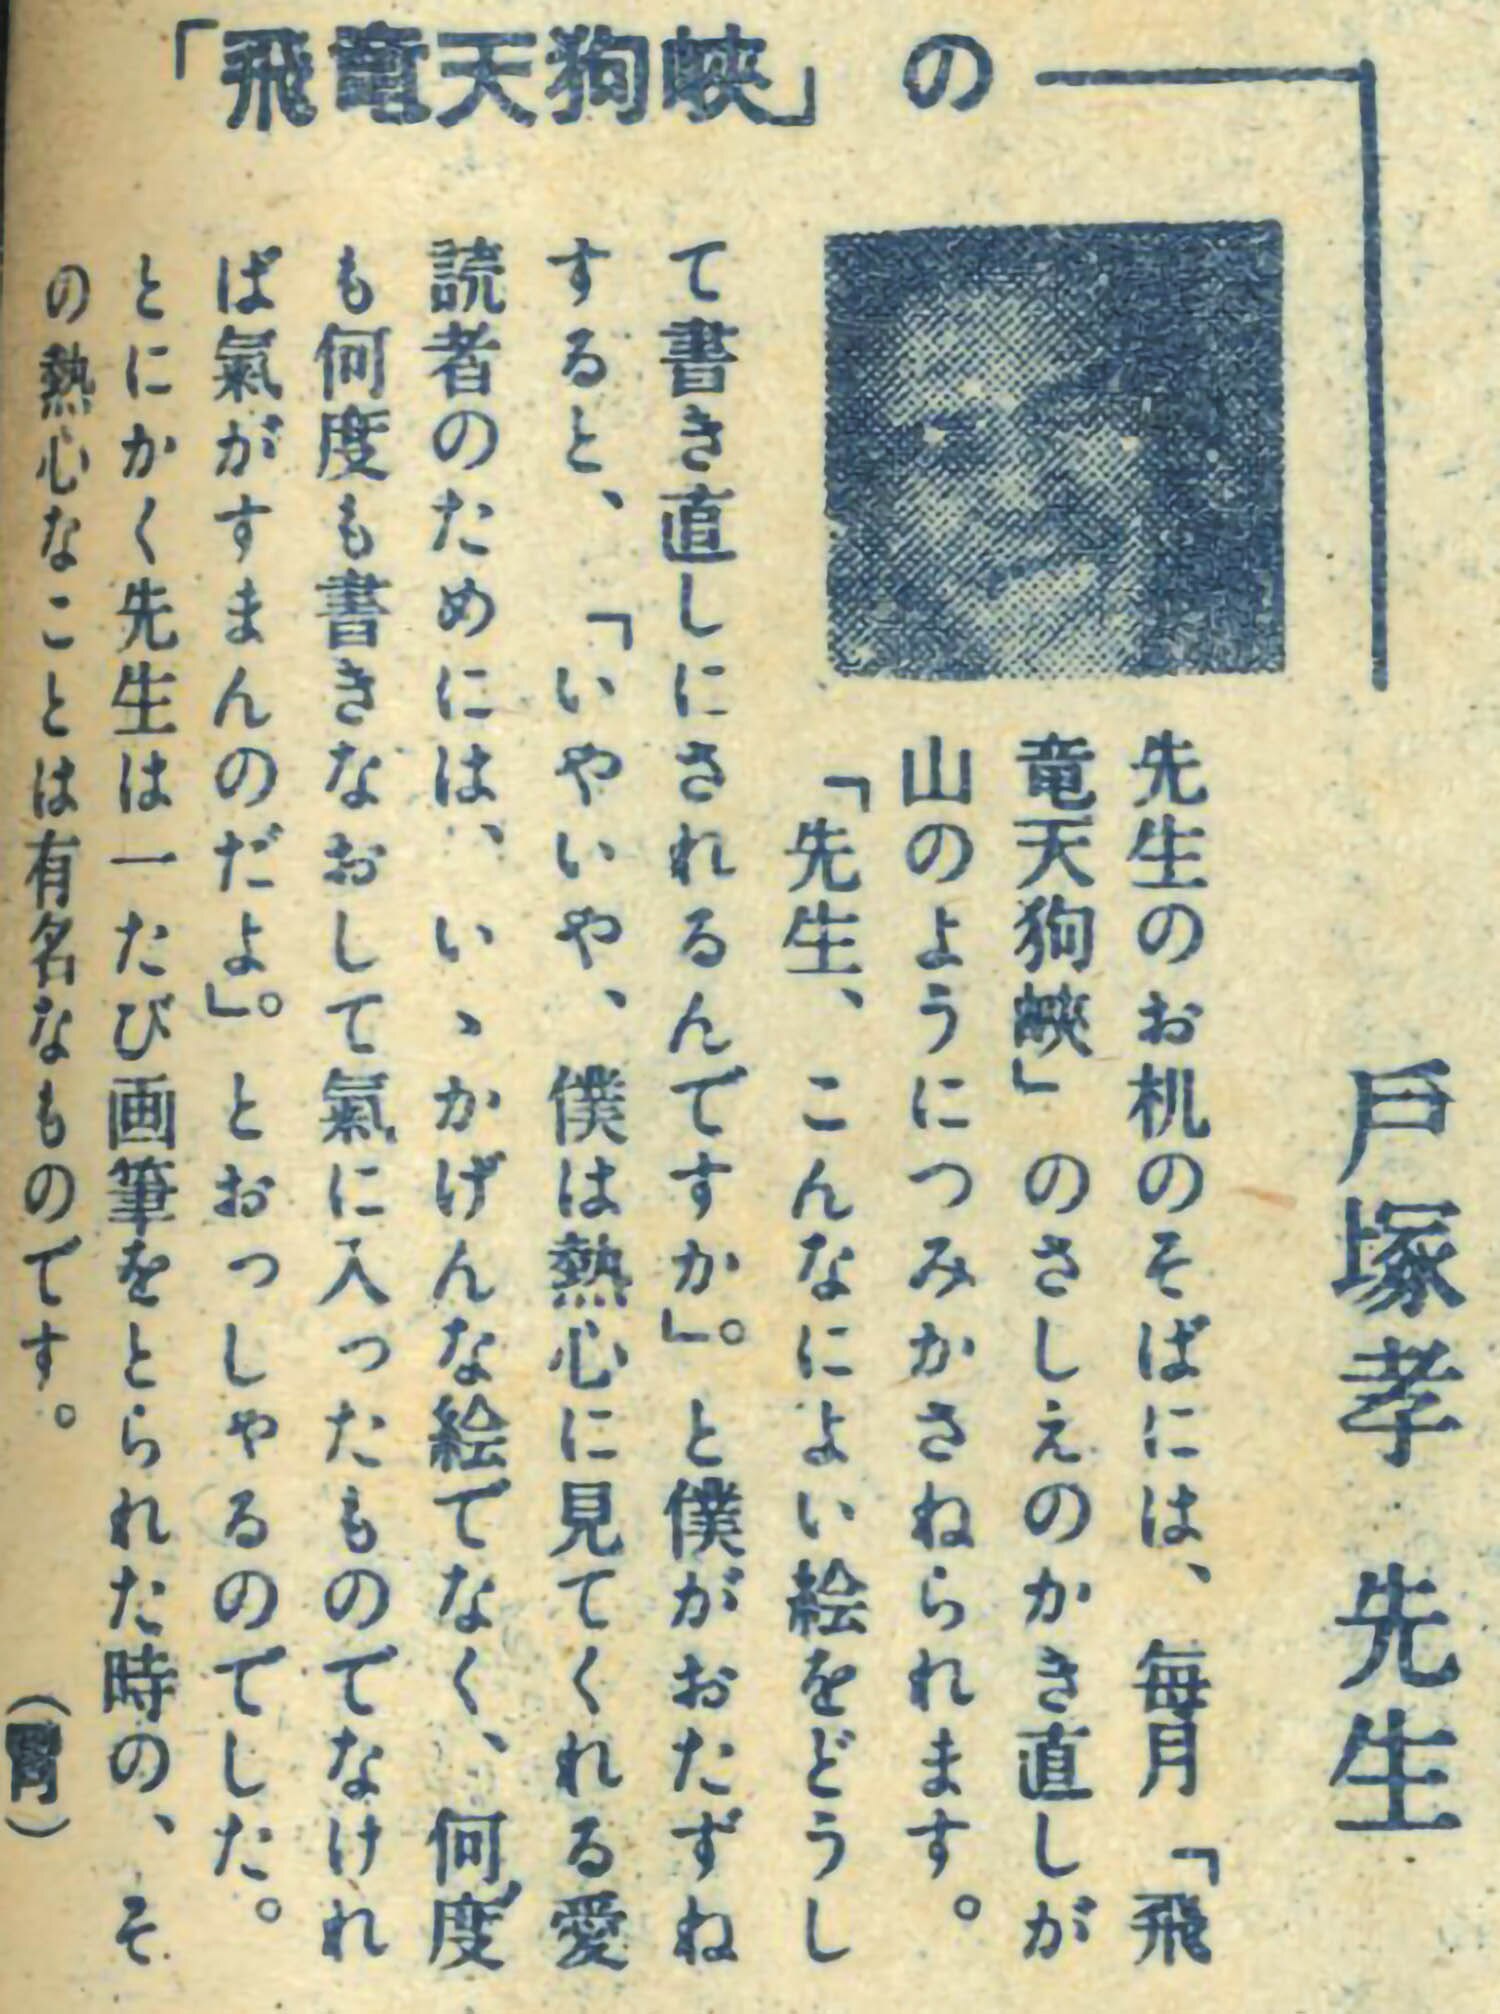 「飛竜天狗峡」の
戸塚孝先生
先生のお机のそばには、毎月「飛
竜天狗峡」のさしえのかき直しが
山のようにつみかさねられます。
「先生、こんなによい絵をどうし
て書き直しにされるんですか」。と僕がおたずね
すると、「いやいや、僕は熱心に見てくれる愛
読者のためには、いゝかげんな絵でなく、何度
も何度も書きなおして氣に入ったものでなけれ
ば氣がすまんのだよ」。とおっしゃるのでした。
とにかく先生は一たび画筆をとられた時の、そ
の熱心なことは有名なものです。